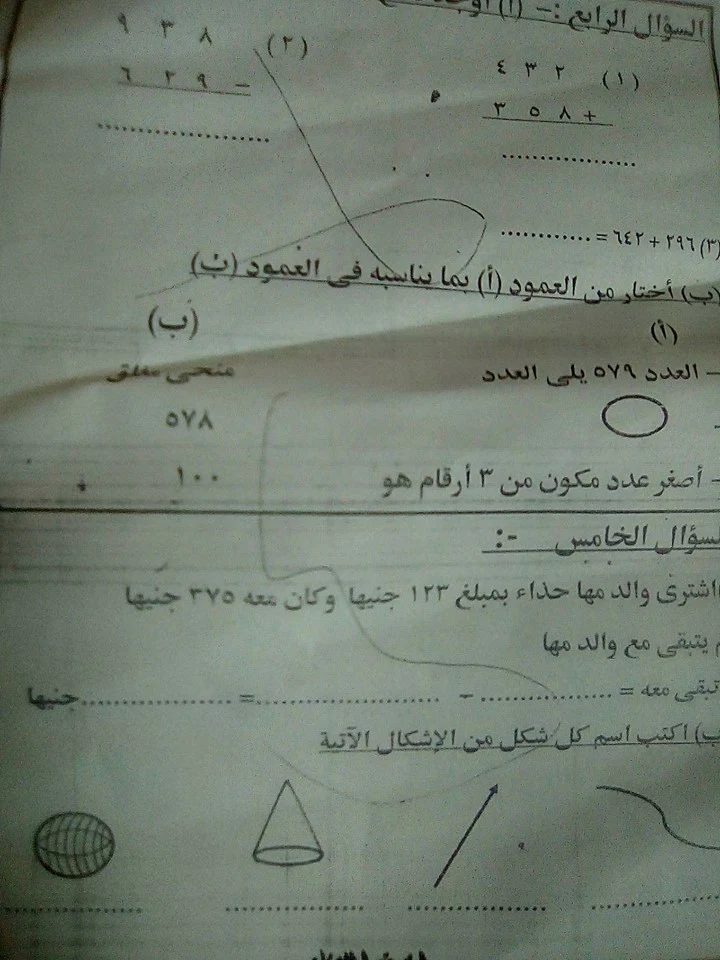 السؤال الرابع :- (أ) أوجد
(١) ٤ ٣ ٢
٣ ٥ ٨ +
..................
(٢) ٩ ٣ ٨
٦ ٢ ٩ -
......................
(٣) ٢٩٦ + ٦٤٢ = ............
(ب) أختار من العمود (أ) بما يناسبه في العمود (ب)
(أ) (ب)
- العدد ٥٧٩ يلى العدد منحنى مغلق
- ٥٧٨
- أصغر عدد مكون من ٣ أرقام هو ١٠٠
السؤال الخامس :-
اشترى والد مها حذاء بمبلغ ١٢٣ جنيها وكان معه ٣٧٥ جنيها
يتبقى مع والد مها
تبقى معه = .................. - ........................ = .................... جنيها
ب) اكتب اسم كل شكل من الإشكال الآتية
.................. .................. .................. ..................